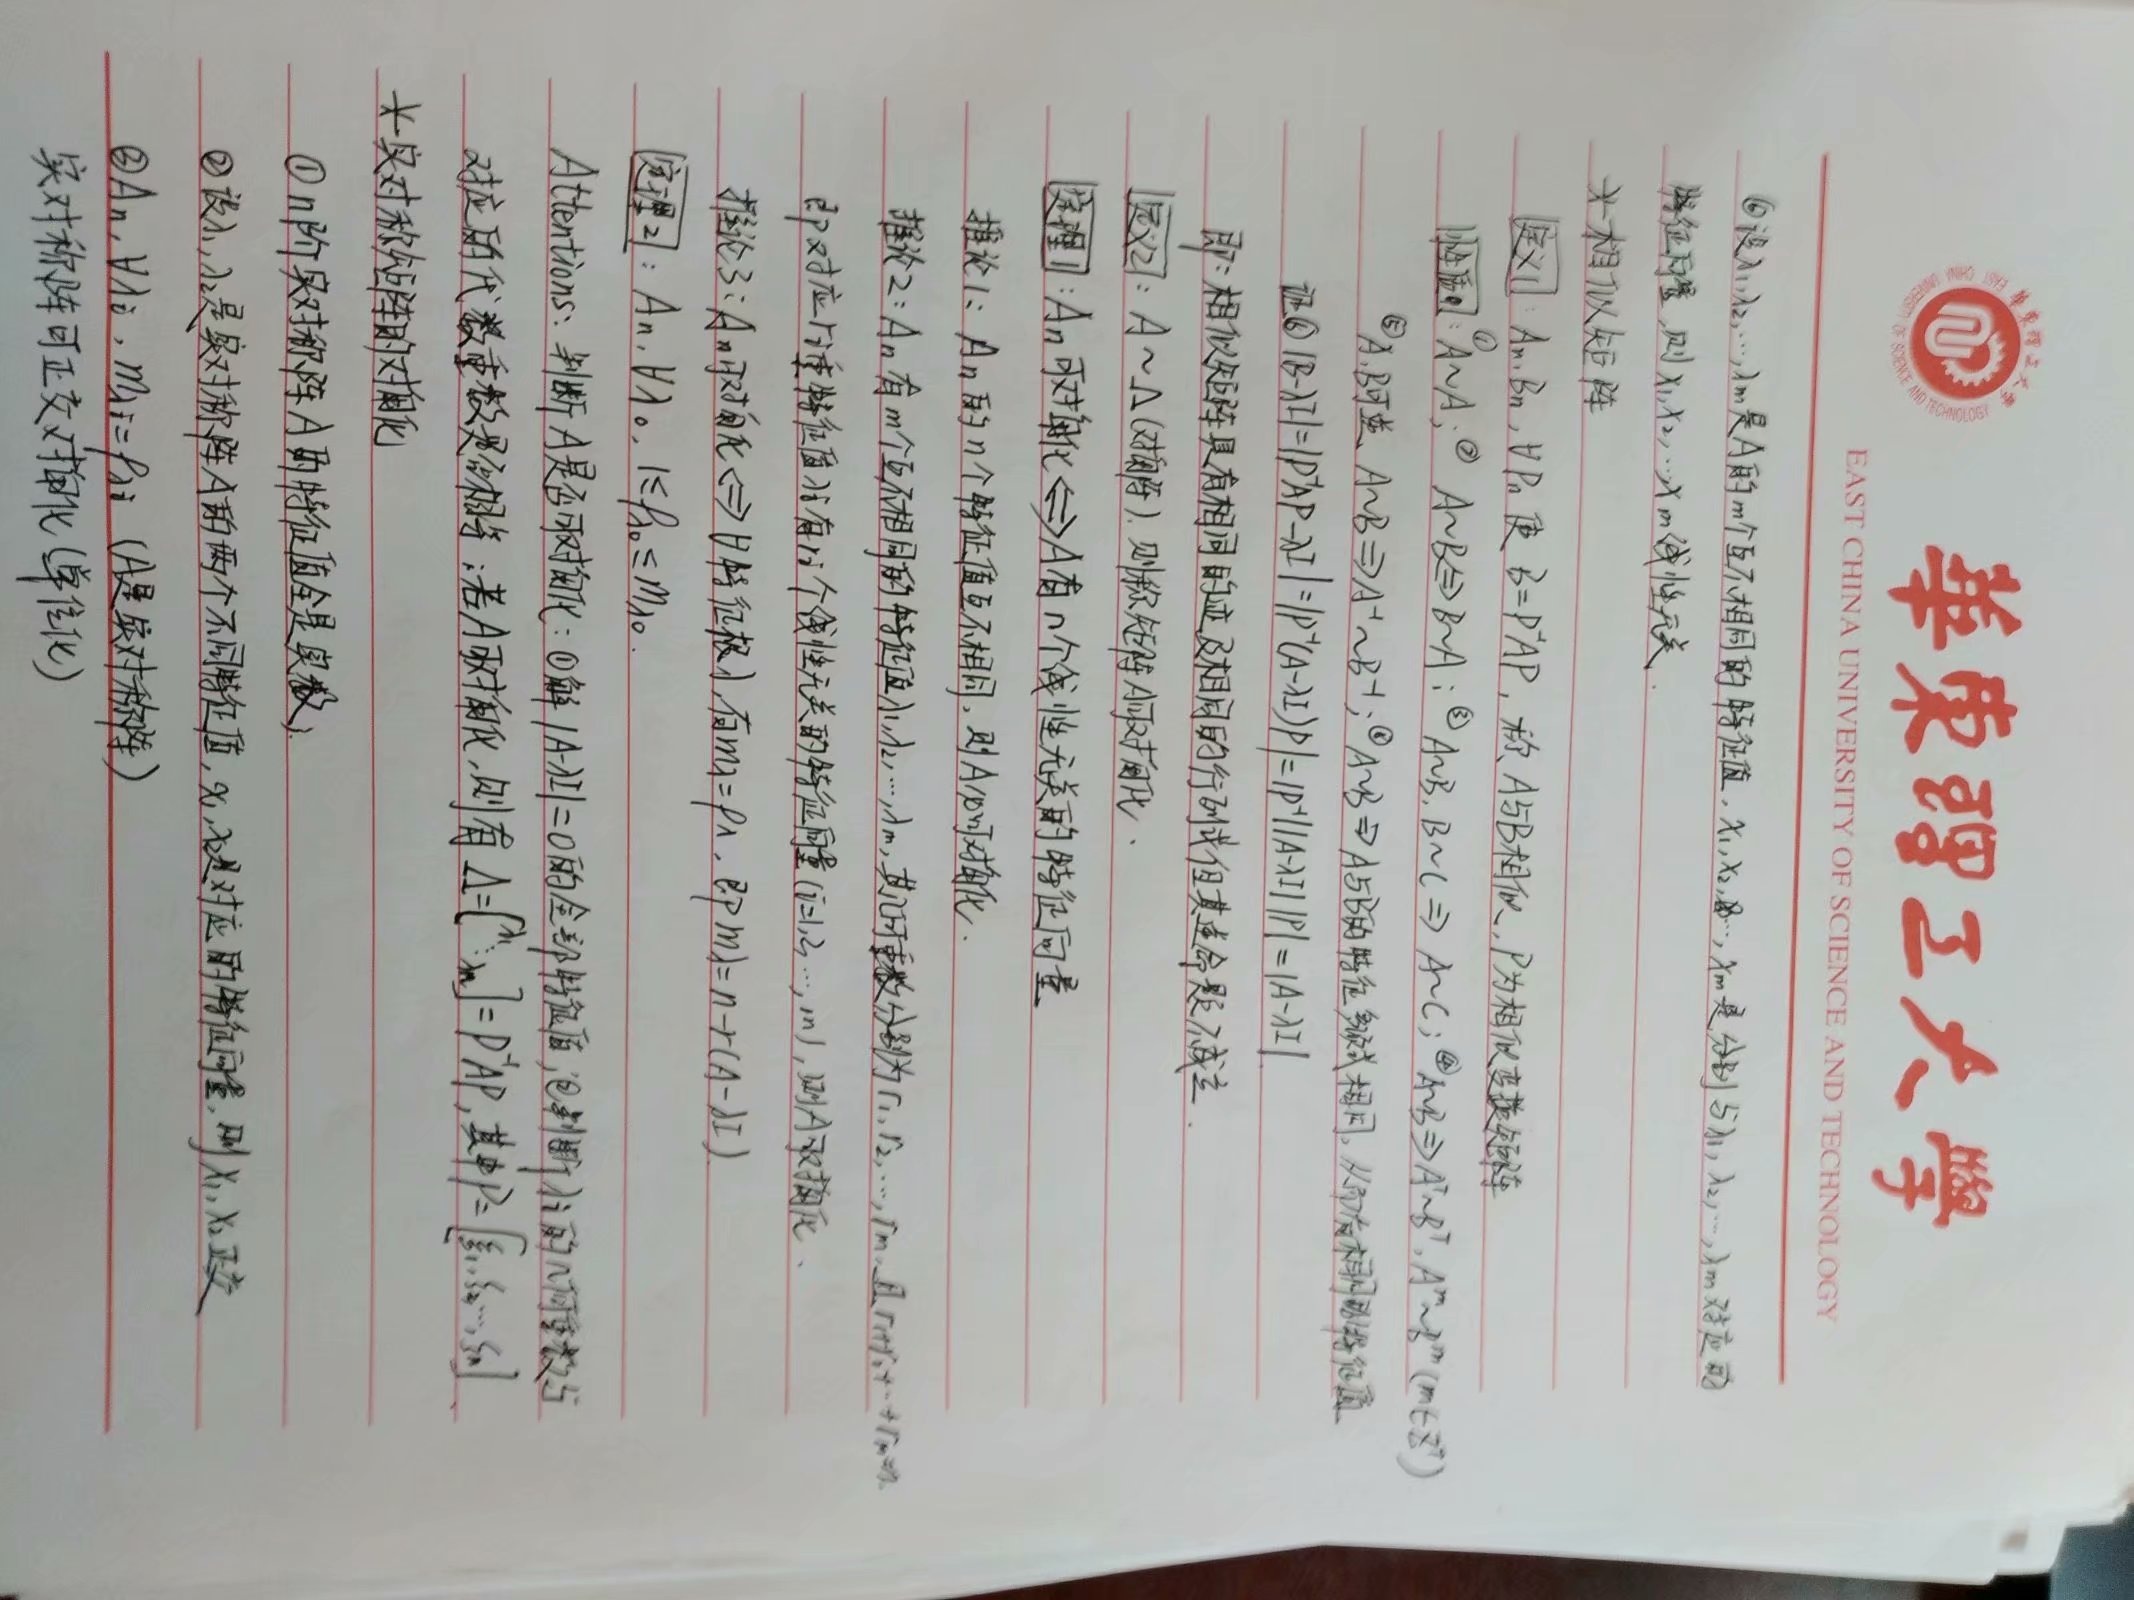 華東理工大學
EAST CHINA UNIVERSITY OF SCIENCE AND TECHNOLOGY
⑥设λ₁,λ₂,…,λm是A的m个互不相同的特征值,x₁,x₂,…,xm是分别与λ₁,λ₂,…,λm对应的
特征向量,则x₁,x₂,…,xm线性无关.
*相似矩阵
定义1: An,Bn,∀Pn使 B=P⁻¹AP,称A与B相似,P为相似变换矩阵
性质: ①A~A;②A~B⇔B~A;③A~B,B~C⇒A~C;④A~B⇒Aᵀ~Bᵀ,Aᵐ~Bᵐ(m∈Z⁺)
⑤A,B可逆,A~B⇒A⁻¹~B⁻¹;⑥A~B⇒A与B的特征多项式相同,从而有相同的特征值
证⑥|B-λI|=|P⁻¹AP-λI|=|P⁻¹(A-λI)P|=|P⁻¹||A-λI||P|=|A-λI|
即:相似矩阵具有相同的迹及相同的行列式但其逆命题不成立.
定义2: A~Λ(对角阵),则称矩阵A可对角化.
定理1: An可对角化⇔A有n个线性无关的特征向量
推论1: An的n个特征值互不相同,则A必可对角化.
推论2: An有m个互不相同的特征值λ₁,λ₂,…,λm,其几何重数分别为r₁,r₂,…,rm,且r₁+r₂+…+rm=n.
即对应ri重特征值λi有ri个线性无关的特征向量(i=1,2,…,m),则A可对角化.
推论3: An可对角化⇔∀特征根λ,有mλ=ρλ,即mλ=n-r(A-λI).
定理2: An,∀λ₀,1≤ρλ₀≤mλ₀.
Attentions: 判断A是否可对角化:①解|A-λI|=0的全部特征值;②判断λi的几何重数与
对应的代数重数是否相等;若A可对角化,则有Λ=[λ₁⋱λn]=P⁻¹AP,其中P=[ξ₁,ξ₂,…,ξn]
*实对称矩阵的对角化
①n阶实对称阵A的特征值全是实数;
②设λ₁,λ₂是实对称阵A的两个不同特征值,x₁,x₂是对应的特征向量,则x₁,x₂正交
②An,∀λi,mi=ρλi(A是实对称阵)
实对称阵可正交对角化(单位化)